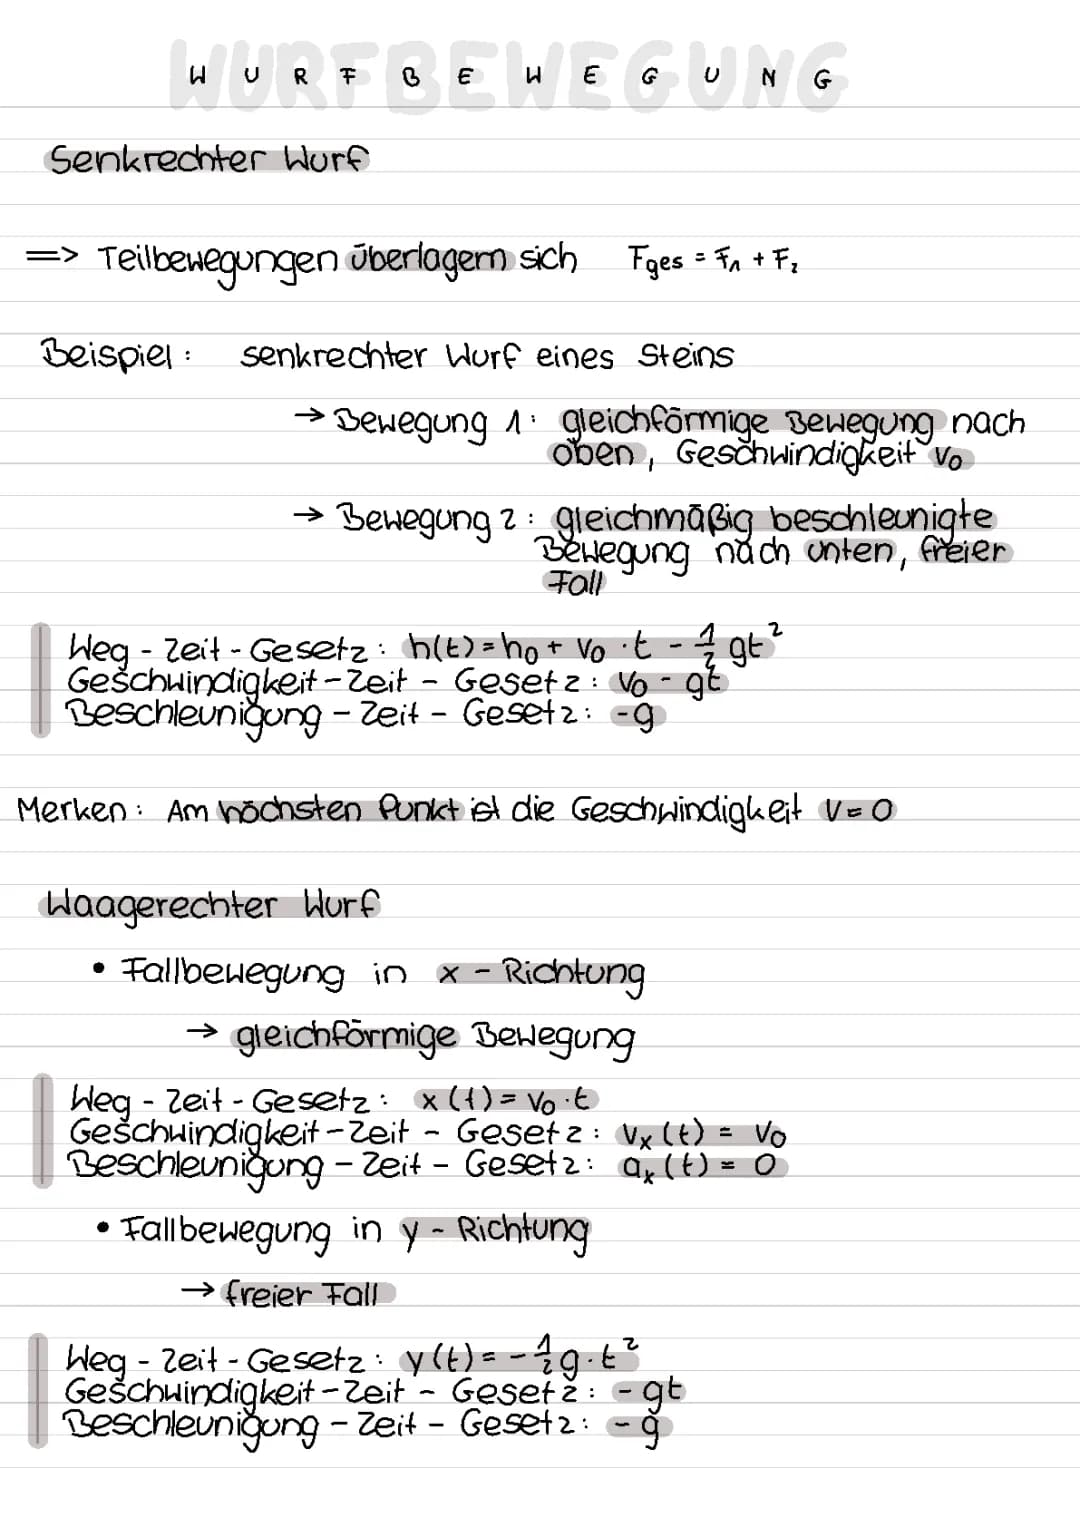 WURFBEWEGUNG
W U R F B E W E G U N G
Senkrechter Wurf
=> Teilbewegungen überlagern sich Fges = F₁ + F₂
Beispiel : senkrechter Wurf eines Steins
→ Bewegung 1: gleichförmige Bewegung nach
oben, Geschwindigkeit v₀
→ Bewegung 2: gleichmäßig beschleunigte
Bewegung nach unten, freier
Fall
Weg - Zeit - Gesetz : h(t) = h₀ + v₀ · t - ½ gt²
Geschwindigkeit - Zeit - Gesetz : v₀ - gt
Beschleunigung - Zeit - Gesetz : -g
Merken : Am höchsten Punkt ist die Geschwindigkeit v = 0
Waagerechter Wurf
• Fallbewegung in x - Richtung
→ gleichförmige Bewegung
Weg - Zeit - Gesetz : x (t) = v₀ · t
Geschwindigkeit - Zeit - Gesetz : vₓ (t) = v₀
Beschleunigung - Zeit - Gesetz : aₓ (t) = 0
• Fallbewegung in y - Richtung
→ freier Fall
Weg - Zeit - Gesetz : y (t) = - ½ g · t²
Geschwindigkeit - Zeit - Gesetz : - gt
Beschleunigung - Zeit - Gesetz : - g